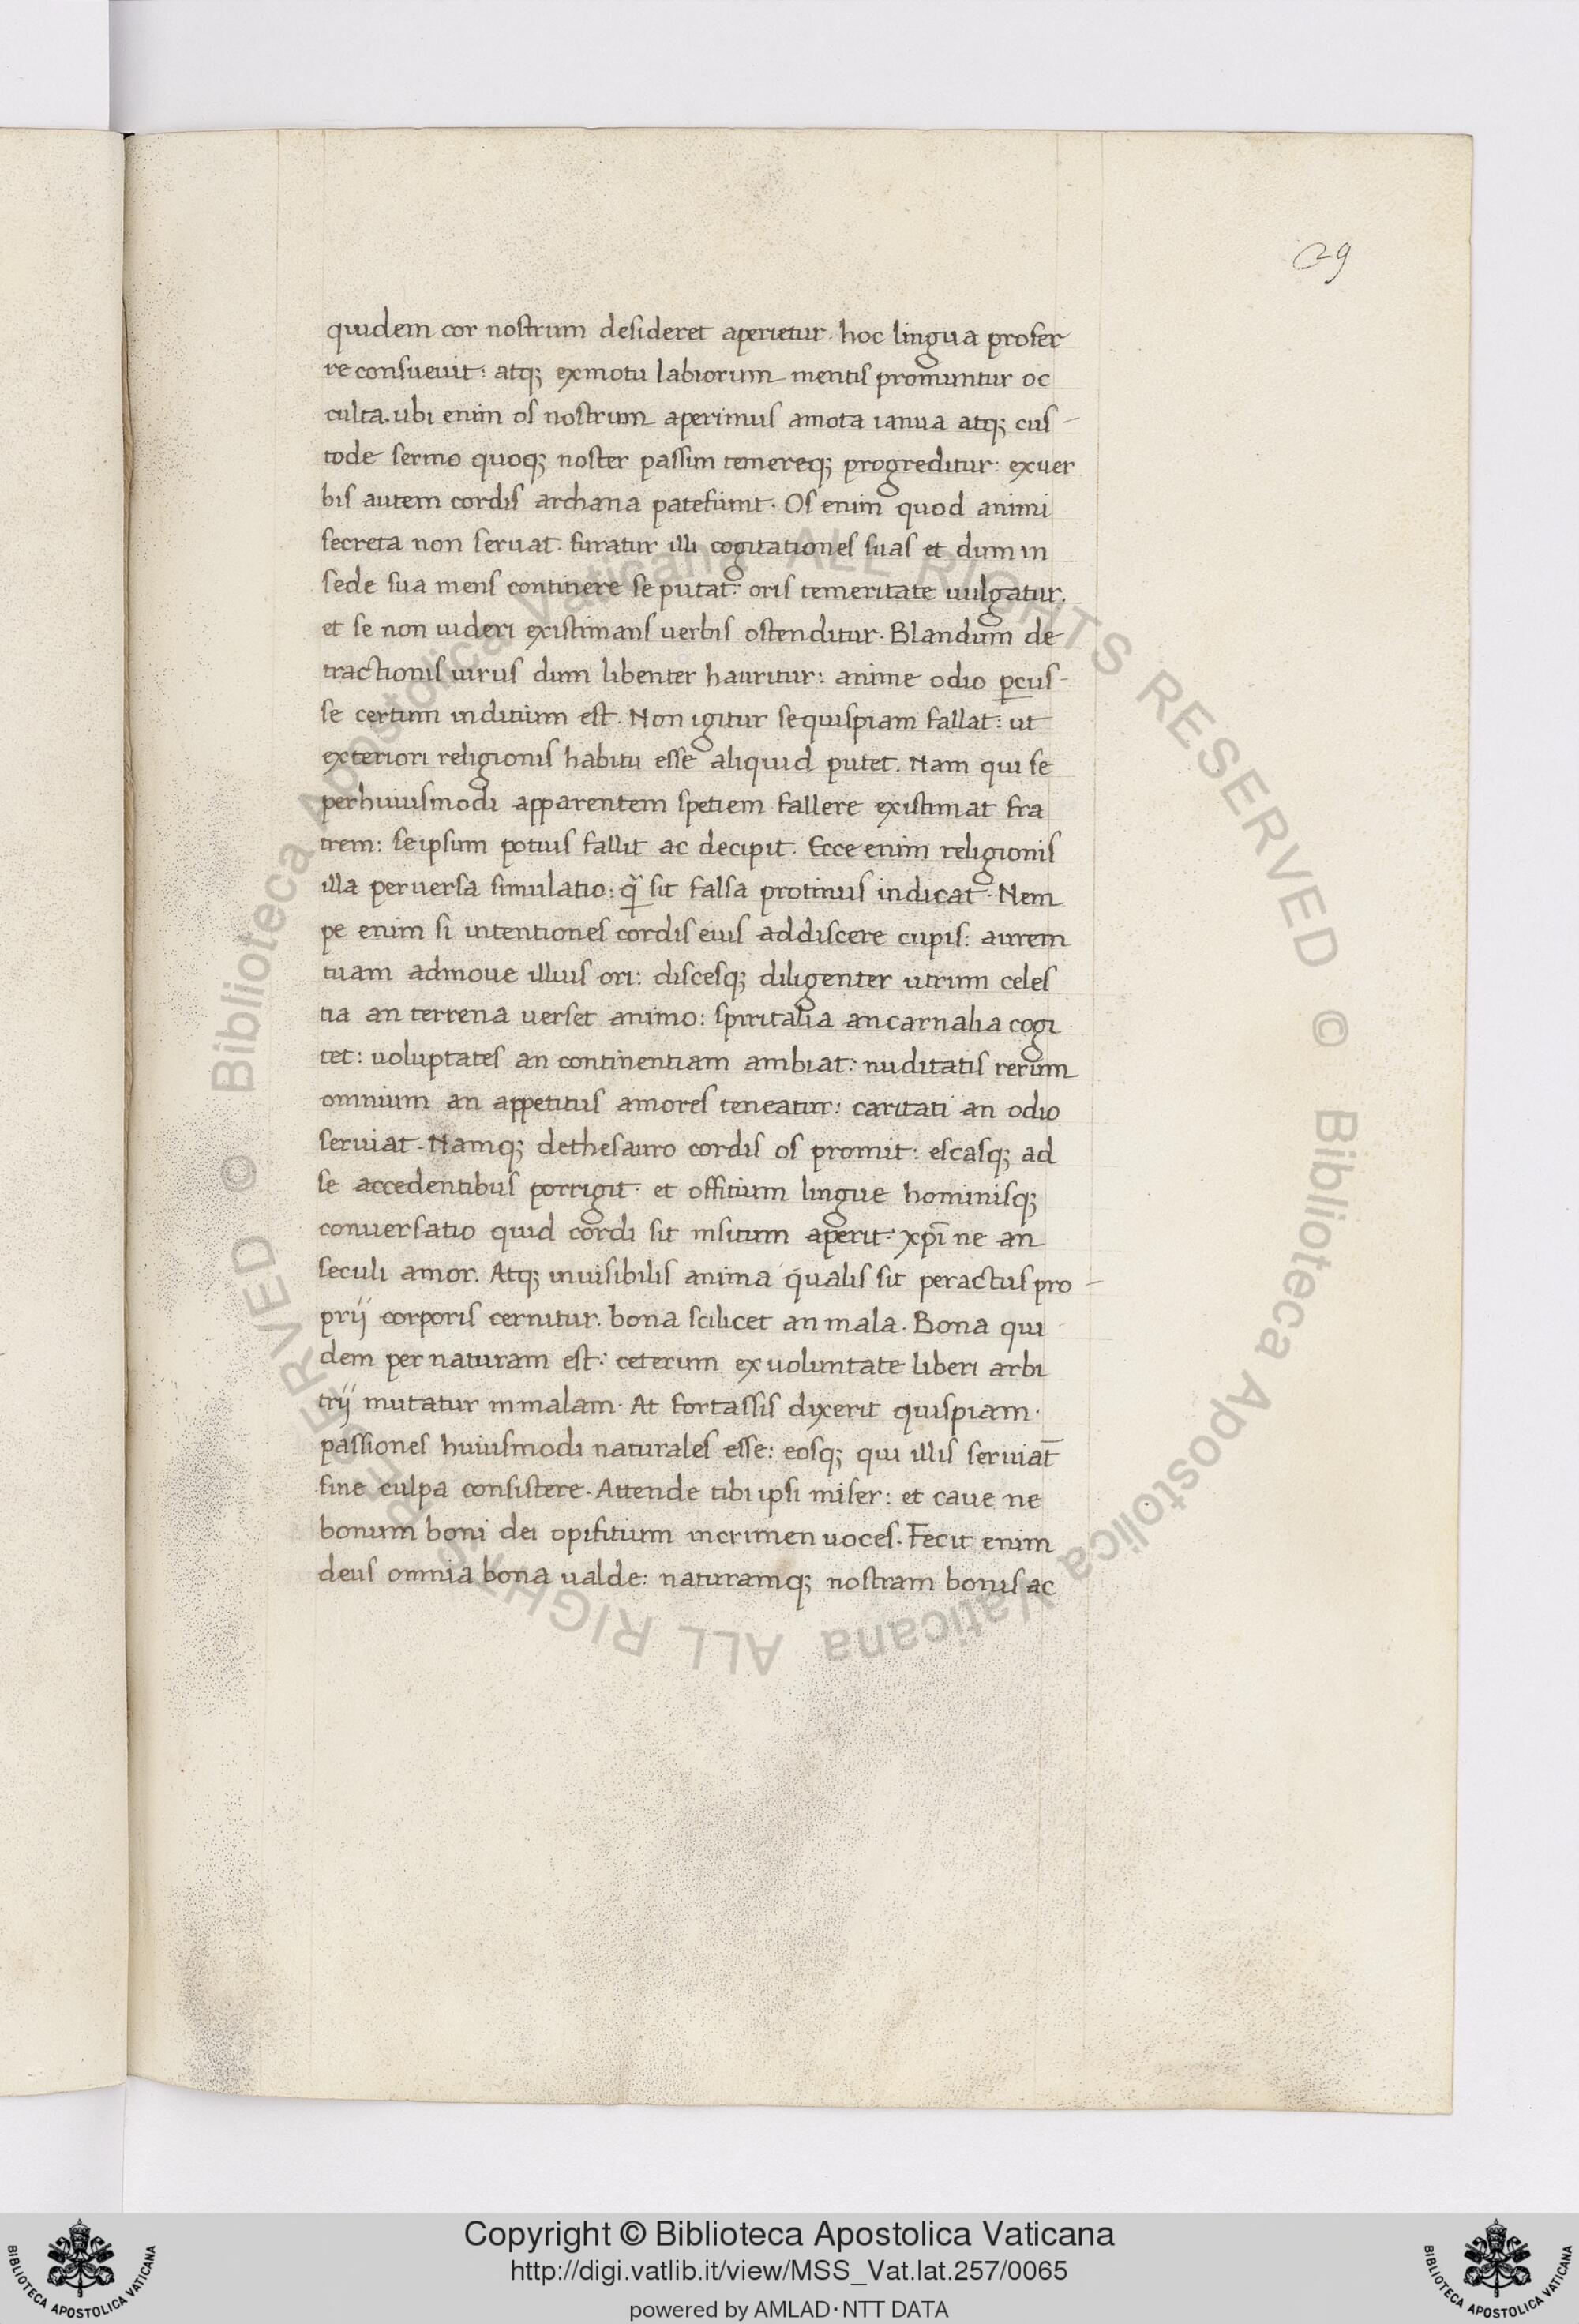 29
quidem cor nostrum desideret aperietur. hoc lingua profer
re consueuit: atq; exmotu labiorum mentis promuntur oc
culta. ubi enim os nostrum aperimus amota ianua atq; cus-
tode sermo quoq; noster passim temereq; progreditur: exuer
bis autem cordis archana patefiunt. Os enim quod animi
secreta non seruat. furatur illi cogitationes suas et dum in
sede sua mens continere se putat: oris temeritate uulgatur.
et se non uideri existimans uerbis ostenditur. Blandum de
tractionis uirus dum libenter hauritur: anime odio ꝑcus-
se certum inditium est. Non igitur sequispiam fallat: ut
exteriori religionis habitu esse aliquid putet. Nam qui se
perhuiusmodi apparentem spetiem fallere existimat fra
trem: seipsum potius fallit ac decipit. Ecce enim religionis
illa peruersa simulatio: q̃ sit falsa protinus indicat. Nem
pe enim si intentiones cordis eius addiscere cupis: aurem
tuam admoue illius ori: discesq; diligenter utrum celes
tia an terrena uerset animo: spiritalia ancarnalia cogi
tet: uoluptates an continentiam ambiat: nuditatis rerum
omnium an appetitus amores teneatur: caritati an odio
seruiat. Namq; dethesauro cordis os promit: escasq; ad
se accedentibus porrigit. et offitium lingue hominisq;
conuersatio quid cordi sit insitum aperit: xp̄i ne an
seculi amor. Atq; inuisibilis anima qualis sit peractus pro-
prij corporis cernitur. bona scilicet an mala. Bona qui
dem per naturam est: ceterum exuoluntate liberi arbi
trij mutatur inmalam. At fortassis dixerit quispiam.
passiones huiusmodi naturales esse: eosq; qui illis seruiat̄
sine culpa consistere. Attende tibi ipsi miser: et caue ne
bonum boni dei opifitium incrimen uoces. Fecit enim
deus omnia bona ualde: naturamq; nostram bonis ac
© Biblioteca Apostolica Vaticana ALL RIGHTS RESERVED © Biblioteca Apostolica Vaticana ALL RIGHTS RESERVED
Copyright © Biblioteca Apostolica Vaticana
http://digi.vatlib.it/view/MSS_Vat.lat.257/0065
powered by AMLAD·NTT DATA
BIBLIOTECA APOSTOLICA VATICANA
BIBLIOTECA APOSTOLICA VATICANA